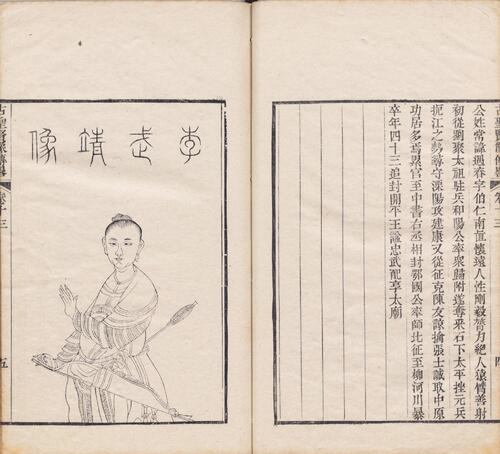 古聖賢像傳畧 卷十三
公姓常諱遇春字伯仁南直懷遠人性剛毅膂力絕人猿臂善射
初從劉聚太祖駐兵和陽公率衆歸附遂奪采石下太平挫元兵
扼江之勢尋守溧陽攻建康又從征克陳友諒擒張士誠取中原
功居多焉累官至中書右丞相封鄂國公率師北征至柳河川暴
卒年四十三追封開平王諡忠武配享太廟
李武靖像
古聖賢像傳畧 卷十三 五